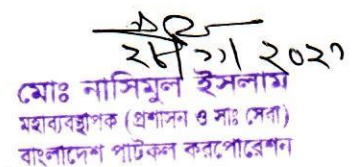 ২৮/১১/২০২১
মোঃ নাসিমুল ইসলাম
মহাব্যবস্থাপক (প্রশাসন ও সাঃ সেবা)
বাংলাদেশ পাটকল করপোরেশন